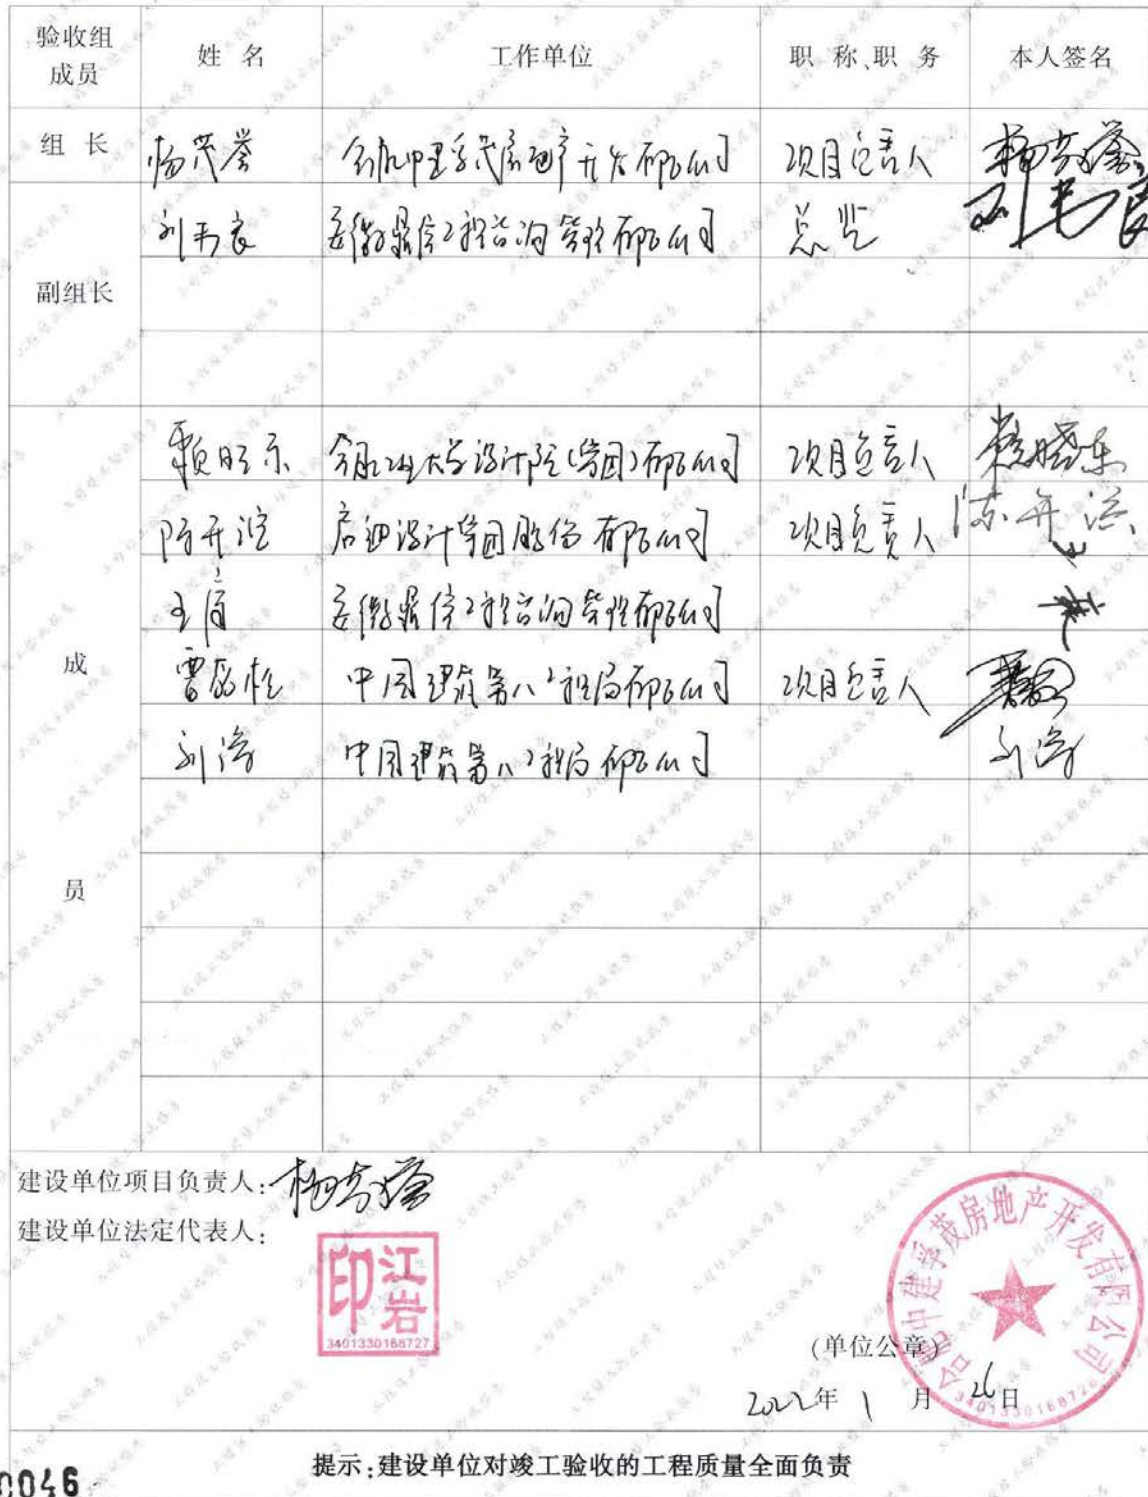 验收组成员 姓 名 工作单位 职 称、职 务 本人签名
组 长 杨茂誉 合肥中建孚茂房地产开发有限公司 项目负责人
副组长
安徽鼎信工程咨询管理有限公司 总监
合肥工业大学设计院(集团)有限公司 项目负责人
启迪设计集团股份有限公司 项目负责人
安徽鼎信工程咨询管理有限公司
成员
中国建筑第八工程局有限公司 项目负责人
刘涛 中国建筑第八工程局有限公司 刘涛
建设单位项目负责人:
建设单位法定代表人:
江岩印
3401330168727
合肥中建孚茂房地产开发有限公司
(单位公章)
2022年 1 月 26日
提示:建设单位对竣工验收的工程质量全面负责
0046